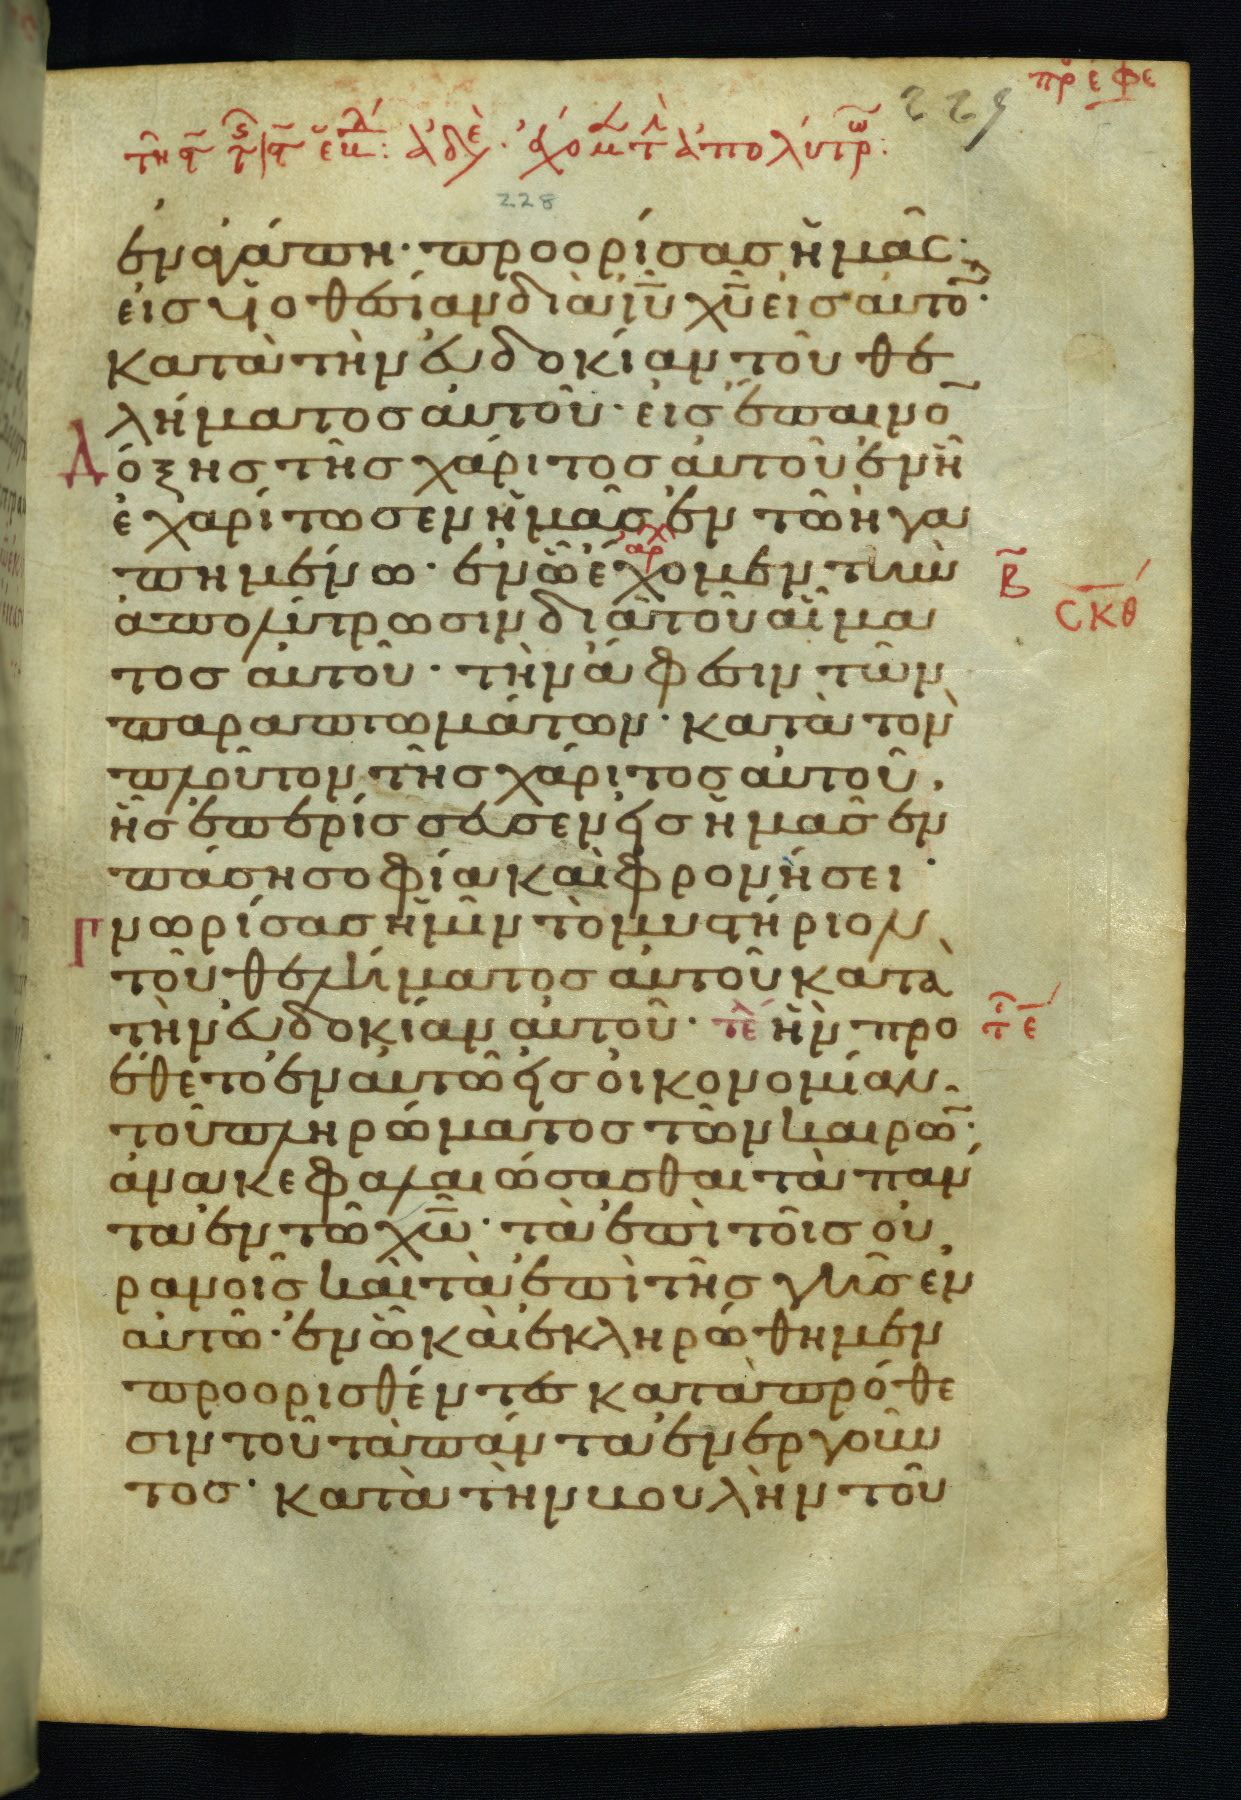 πρ εφε
229
τη παρ τ ϛ εβδ: ἀδε. ἔχομεν τ ἀπολύτρω:
228
ἐν ἀγάπη· προορίσας ἡμᾶς·
εἰς υἱοθεσίαν διὰ ἰῦ χῦ εἰς αὐτο̄·
κατὰ τὴν εὐδοκίαν τοῦ θε
λήματος αὐτοῦ· εἰς ἔπαινο̄
Δόξης τῆς χάριτος αὐτοῦ ἐν ἧ
ἐχαρίτωσεν ἡμᾶς ἐν τῶ ἠγα
πημένω· ἐν ὧ ἔχομεν τὴν
ἀρχ
Β
σκθ
ἀπολύτρωσιν διὰ τοῦ αἵμα
τος αὐτοῦ· τὴν ἄφεσιν τῶν
παραπτωμάτων· κατὰ τὸν
πλοῦτον τῆς χάριτος αὐτοῦ,
ἧς ἐπερίσσευσεν εἰς ἡμᾶς ἐν
πάση σοφία καὶ φρονήσει·
Γνωρίσας ἡμῖν τὸ μυστήριον
τοῦ θελήματος αὐτοῦ κατὰ
τὴν εὐδοκίαν αὐτοῦ· τέλ ἣν προ
έθετο ἐν αὐτῶ εἰς οἰκονομίαν
τοῦ πληρώματος τῶν καιρῶ̄·
ἀνακεφαλαιώσασθαι τὰ πάν
τα ἐν τῶ χῶ· τὰ ἐπὶ τοῖς οὐ
ρανοῖς καὶ τὰ ἐπὶ τῆς γῆς ἐν
αὐτῶ· ἐν ὧ καὶ ἐκληρώθημεν
προορισθέντες κατὰ πρόθε
σιν τοῦ τὰ πάντα ἐνεργοῦν
τος· κατὰ τὴν βουλὴν τοῦ